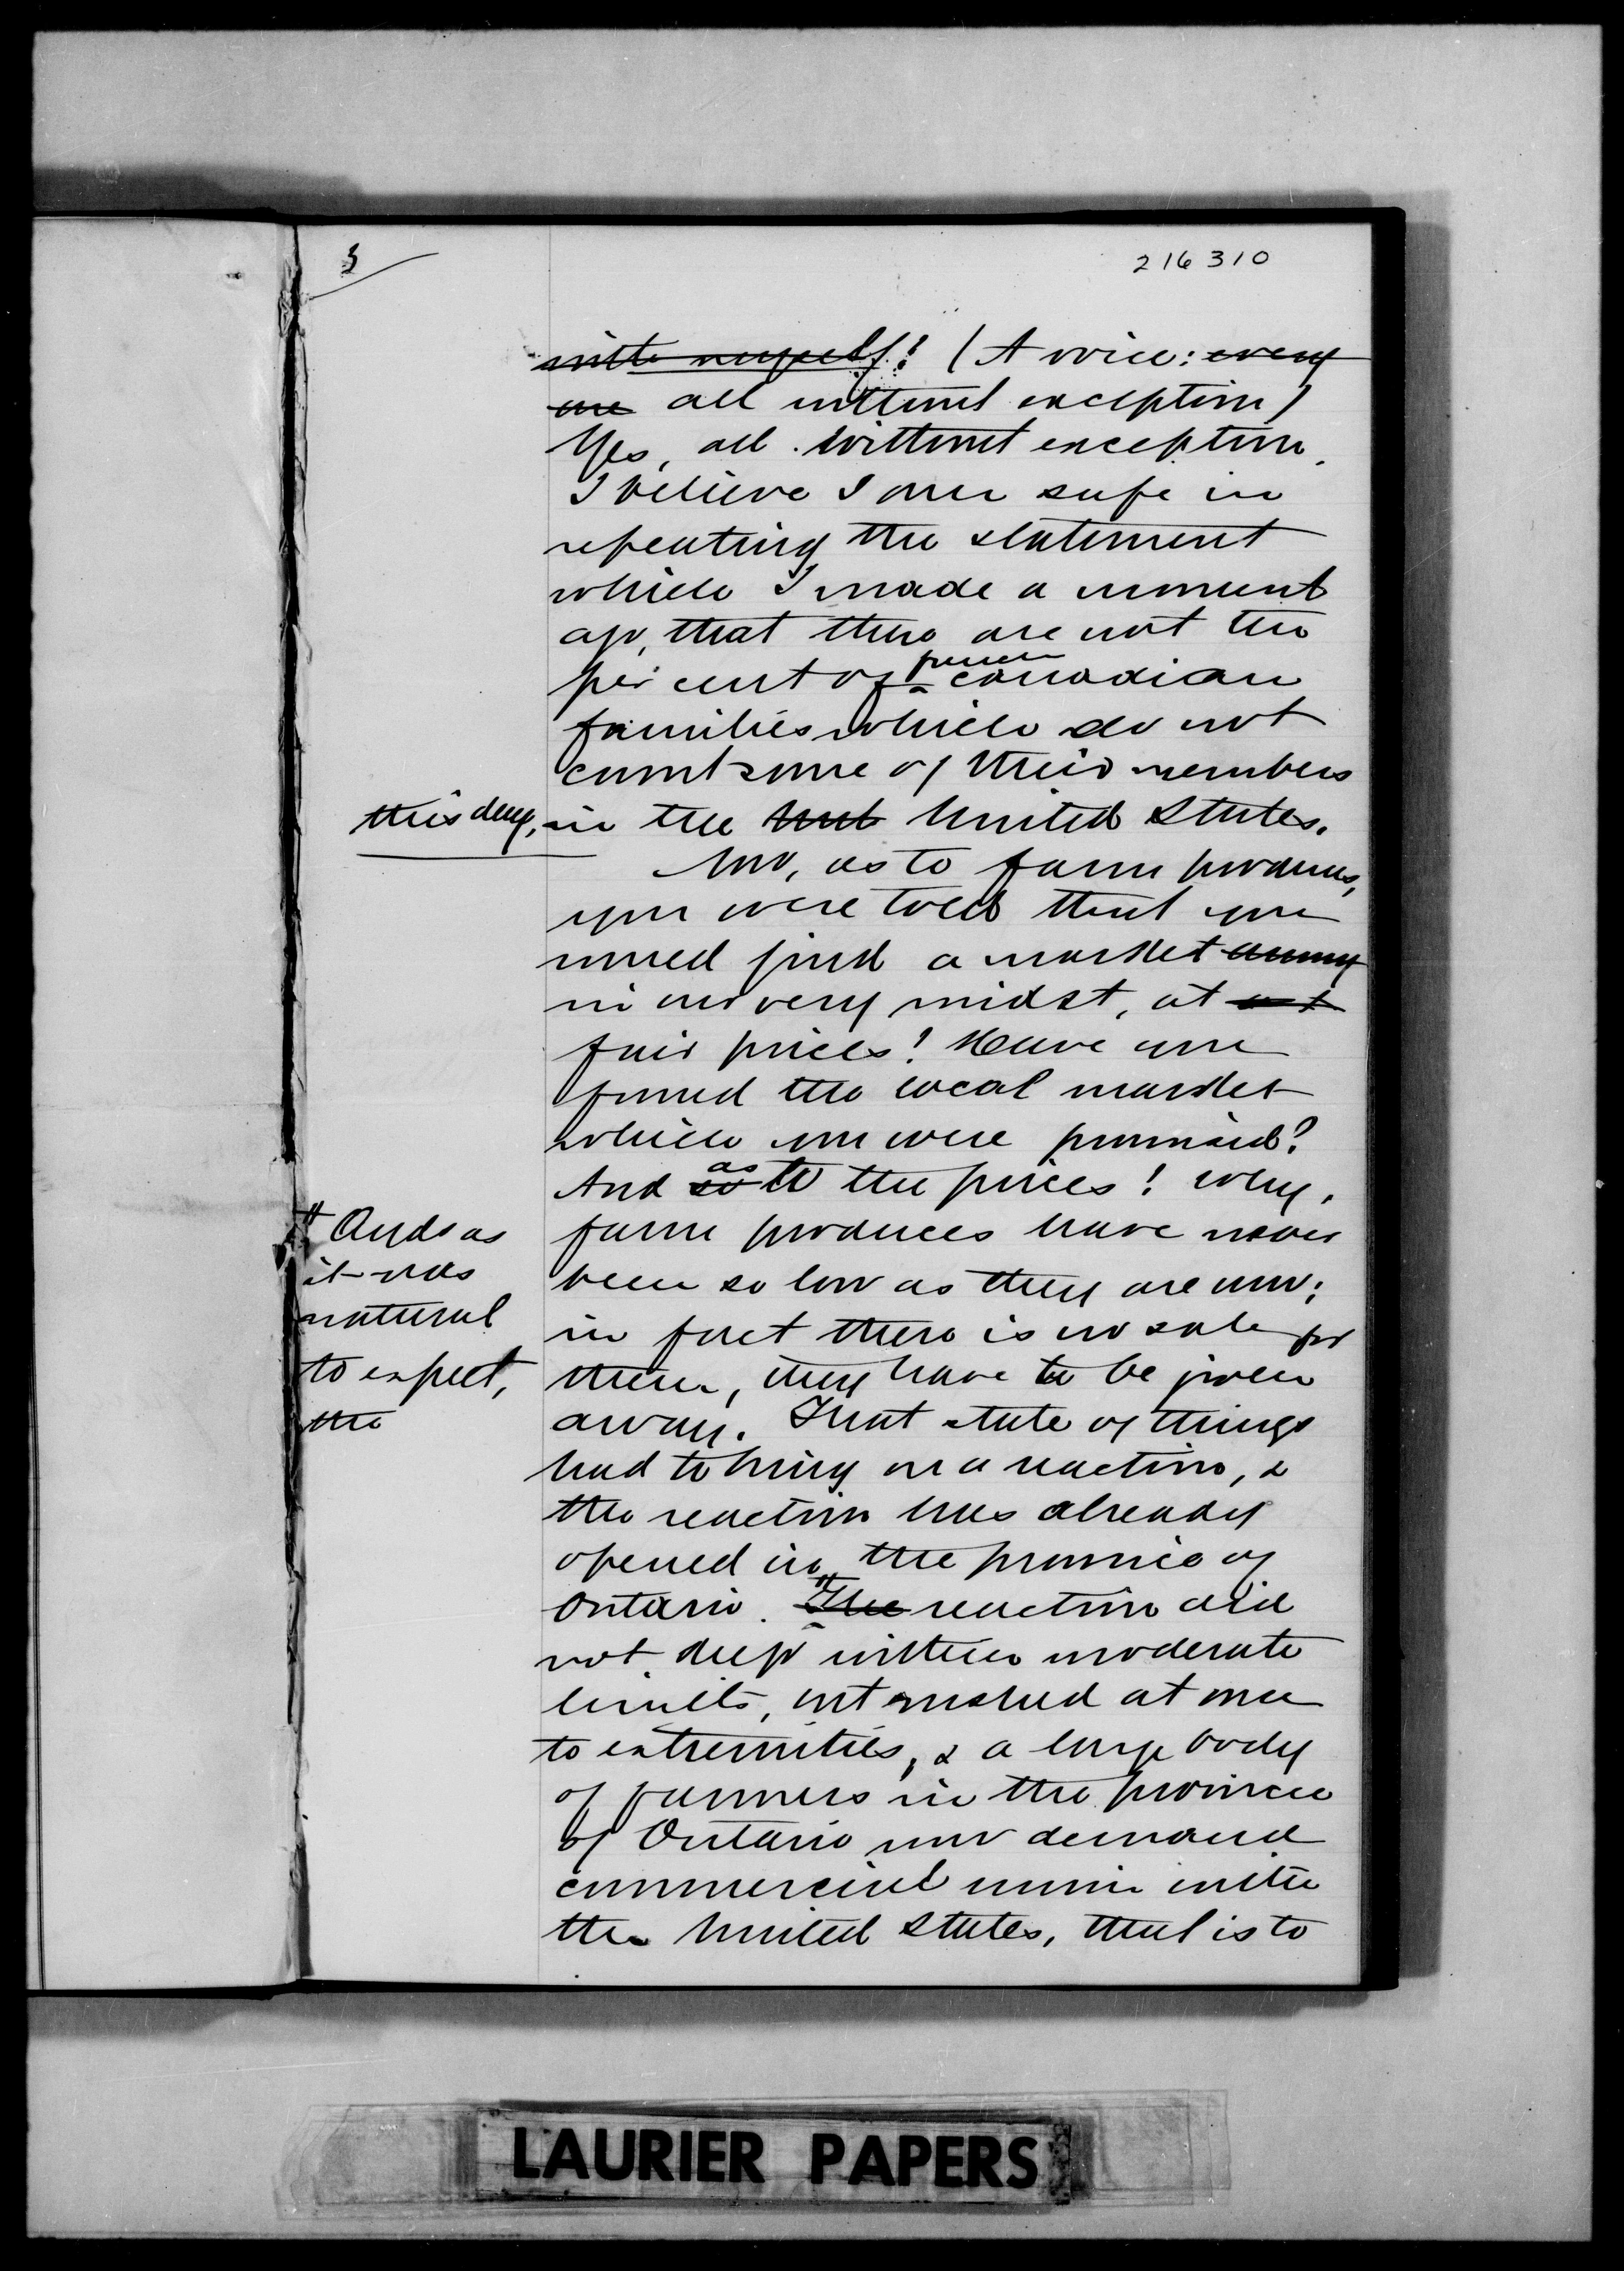 5
216310
with myself? (A voice: every
one all without exception)
Yes, all without exception.
I believe I am safe in
repeating the statement
which I made a moment
ago, that there are not ten
per cent of french canadian
families which do not
count some of their members
this day, in the Unit United States.
Now, as to farm produces,
you were told that you
would find a market among
in our very midst, at
fair prices! Have you
found the local market
which you were promised?
And so as to the prices! Why,
farm produces have never
been so low as they are now;
in fact there is no sale for
them, they have to be given
away. That state of things
had to bring on a reaction, &
the reaction has already
opened in the province of
Ontario. The reaction did
And as
it was
natural
to expect,
the
not keep within moderate
limits, but rushed at once
to extremities, & a large body
of farmers in the province
of Ontario now demand
commercial union with
the United States, that is to
LAURIER PAPERS